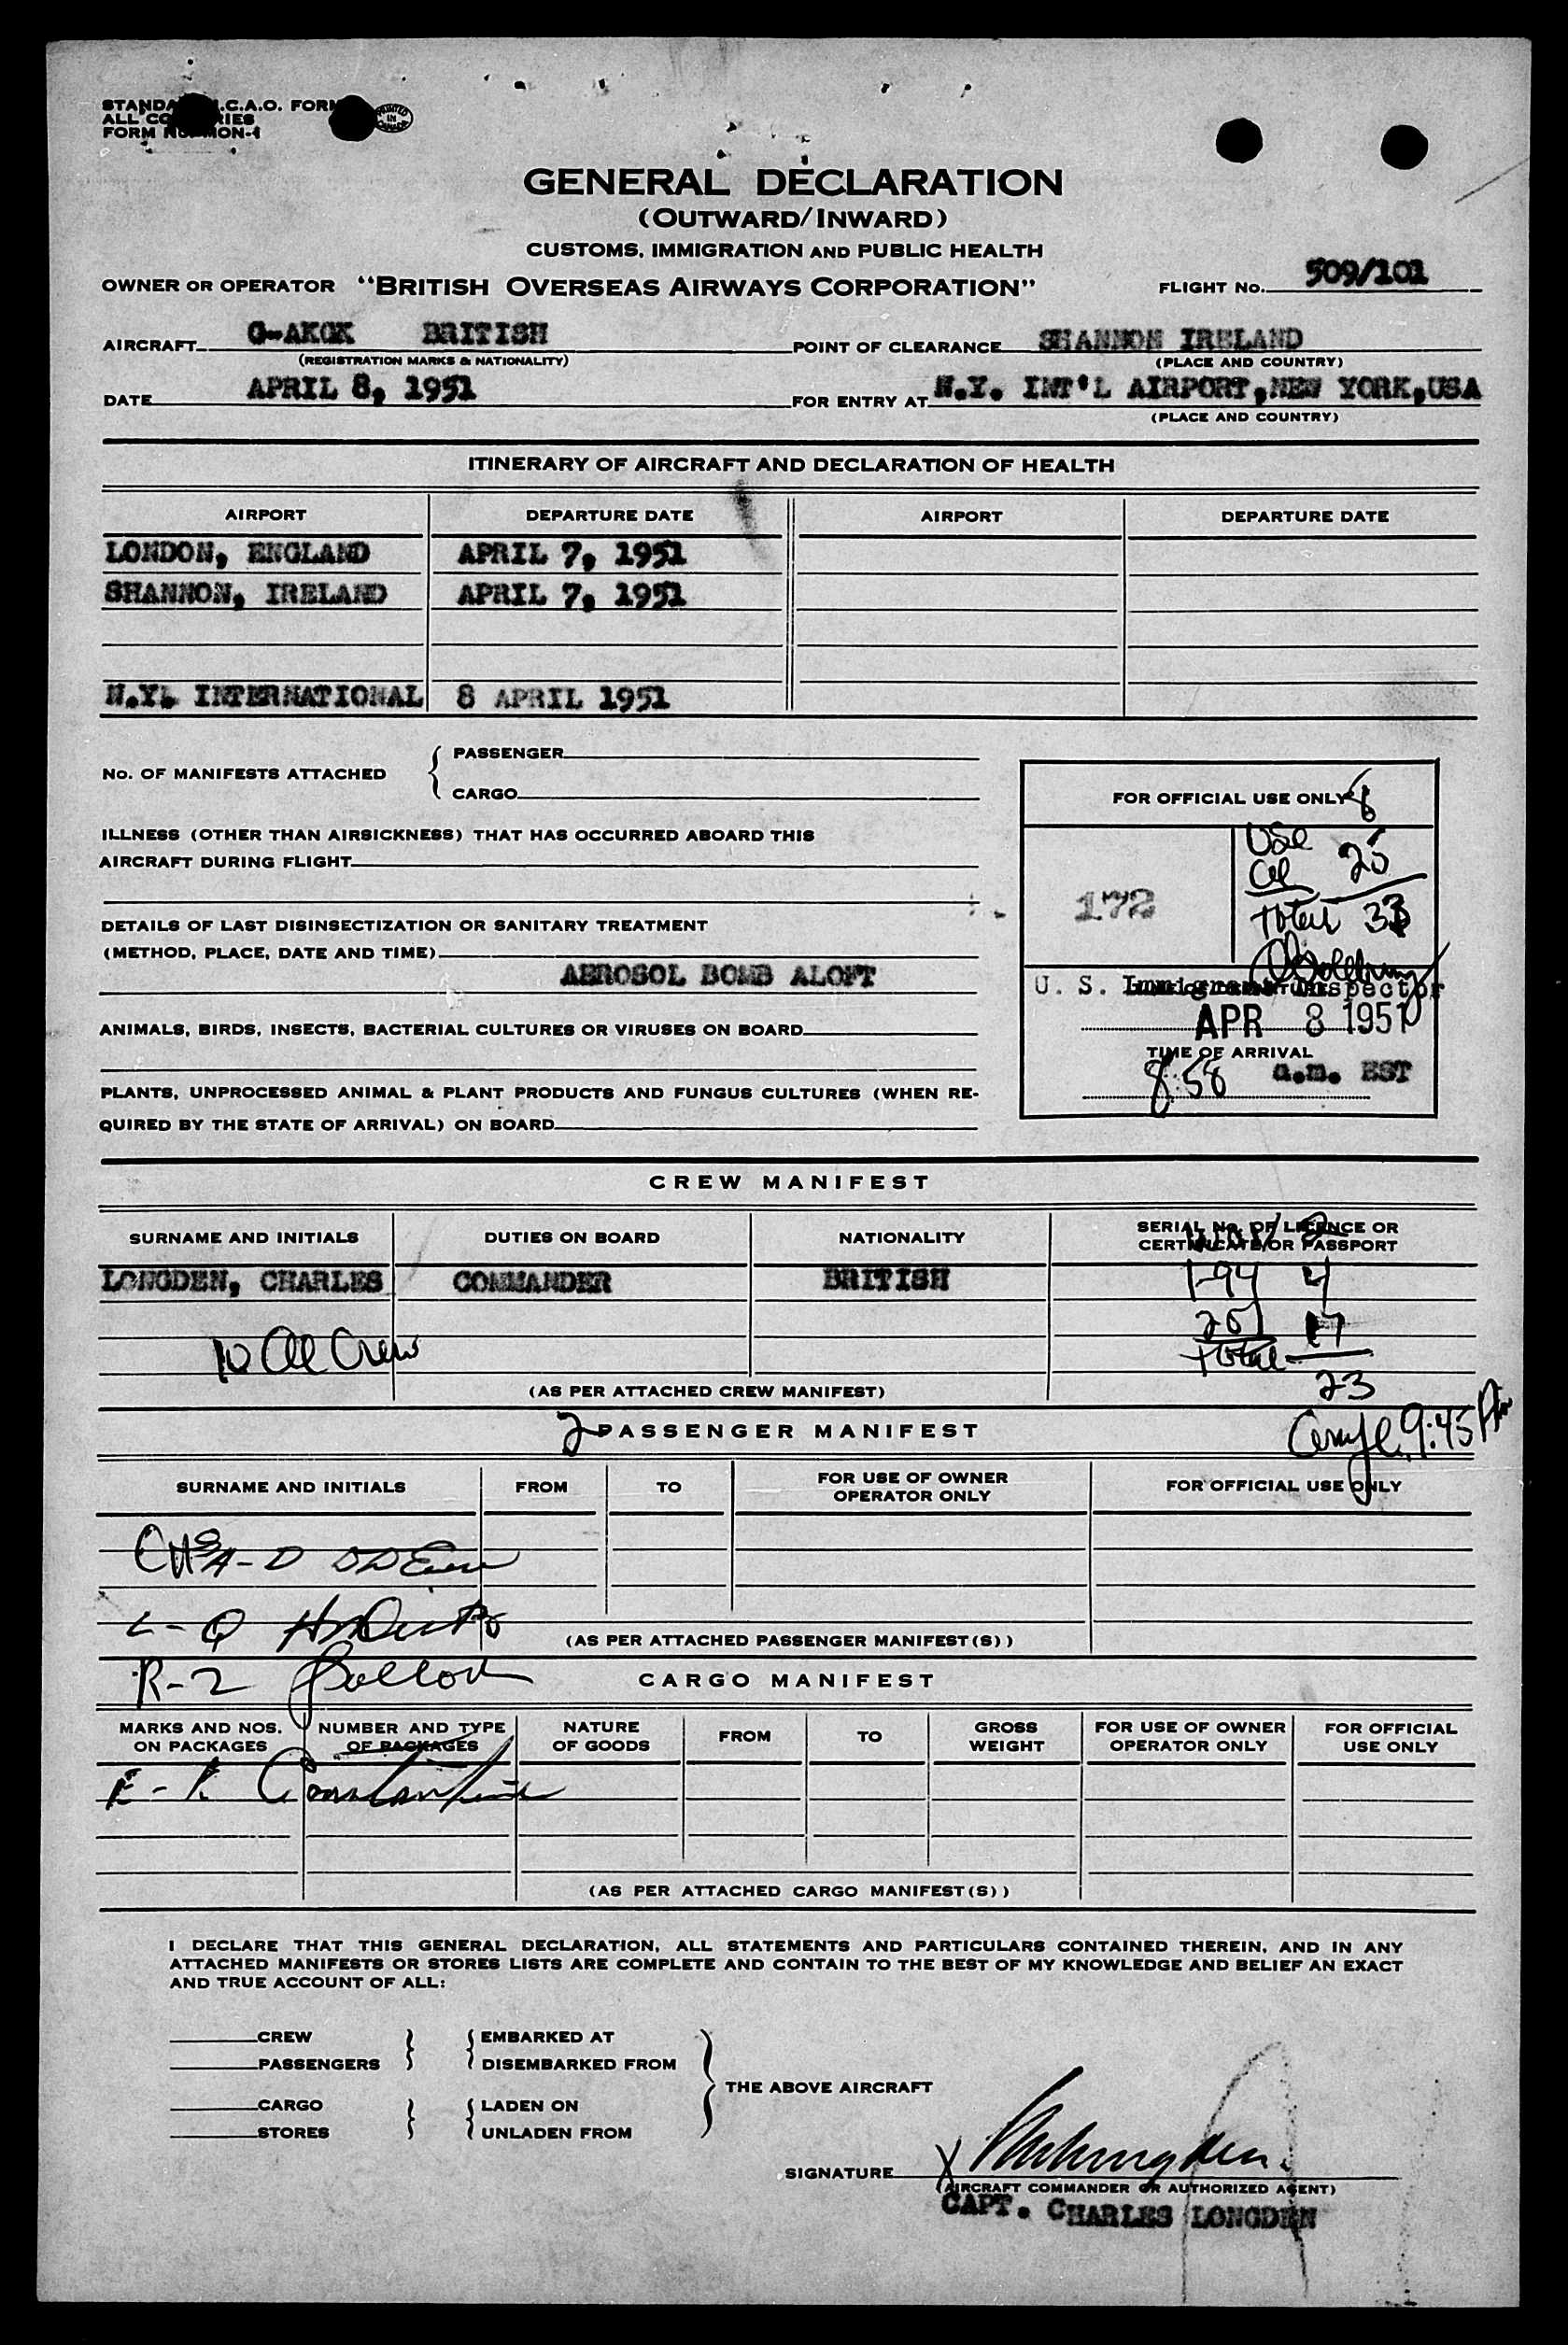 STANDA .C.A.O. FORM
ALL CO RIES
FORM No. MON-1
PRINTED IN CANADA
GENERAL DECLARATION
(OUTWARD/INWARD)
CUSTOMS, IMMIGRATION AND PUBLIC HEALTH
OWNER OR OPERATOR "BRITISH OVERSEAS AIRWAYS CORPORATION" FLIGHT No. 509/101
AIRCRAFT G-AKGK BRITISH POINT OF CLEARANCE SHANNON IRELAND
(REGISTRATION MARKS & NATIONALITY) (PLACE AND COUNTRY)
DATE APRIL 8, 1951 FOR ENTRY AT N.Y. INT'L AIRPORT, NEW YORK, USA
(PLACE AND COUNTRY)
ITINERARY OF AIRCRAFT AND DECLARATION OF HEALTH
AIRPORT DEPARTURE DATE AIRPORT DEPARTURE DATE
LONDON, ENGLAND APRIL 7, 1951
SHANNON, IRELAND APRIL 7, 1951
N.Y. INTERNATIONAL 8 APRIL 1951
No. OF MANIFESTS ATTACHED
PASSENGER
CARGO
ILLNESS (OTHER THAN AIRSICKNESS) THAT HAS OCCURRED ABOARD THIS
AIRCRAFT DURING FLIGHT
DETAILS OF LAST DISINSECTIZATION OR SANITARY TREATMENT
(METHOD, PLACE, DATE AND TIME)
AEROSOL BOMB ALOFT
ANIMALS, BIRDS, INSECTS, BACTERIAL CULTURES OR VIRUSES ON BOARD
PLANTS, UNPROCESSED ANIMAL & PLANT PRODUCTS AND FUNGUS CULTURES (WHEN RE-
QUIRED BY THE STATE OF ARRIVAL) ON BOARD
FOR OFFICIAL USE ONLY
USC 8
al 25
172
Total 33
U. S. Immigrant Inspector
APR 8 1951
TIME OF ARRIVAL
8:58 a.m. EST
CREW MANIFEST
SURNAME AND INITIALS DUTIES ON BOARD NATIONALITY SERIAL No. OF LICENCE OR
CERTIFICATE OR PASSPORT
2
LONGDEN, CHARLES COMMANDER BRITISH
I-94 4
257 17
10 al Crew
Total
23
(AS PER ATTACHED CREW MANIFEST)
2 PASSENGER MANIFEST
9:45
SURNAME AND INITIALS FROM TO FOR USE OF OWNER
OPERATOR ONLY FOR OFFICIAL USE ONLY
A-D
L-Q
(AS PER ATTACHED PASSENGER MANIFEST(S))
R-Z
CARGO MANIFEST
MARKS AND NOS.
ON PACKAGES NUMBER AND TYPE
OF PACKAGES NATURE
OF GOODS FROM TO GROSS
WEIGHT FOR USE OF OWNER
OPERATOR ONLY FOR OFFICIAL
USE ONLY
E-K Constantine
(AS PER ATTACHED CARGO MANIFEST(S))
I DECLARE THAT THIS GENERAL DECLARATION, ALL STATEMENTS AND PARTICULARS CONTAINED THEREIN, AND IN ANY
ATTACHED MANIFESTS OR STORES LISTS ARE COMPLETE AND CONTAIN TO THE BEST OF MY KNOWLEDGE AND BELIEF AN EXACT
AND TRUE ACCOUNT OF ALL:
CREW EMBARKED AT
PASSENGERS DISEMBARKED FROM
THE ABOVE AIRCRAFT
CARGO LADEN ON
STORES UNLADEN FROM
SIGNATURE X
(AIRCRAFT COMMANDER OR AUTHORIZED AGENT)
CAPT. CHARLES LONGDEN